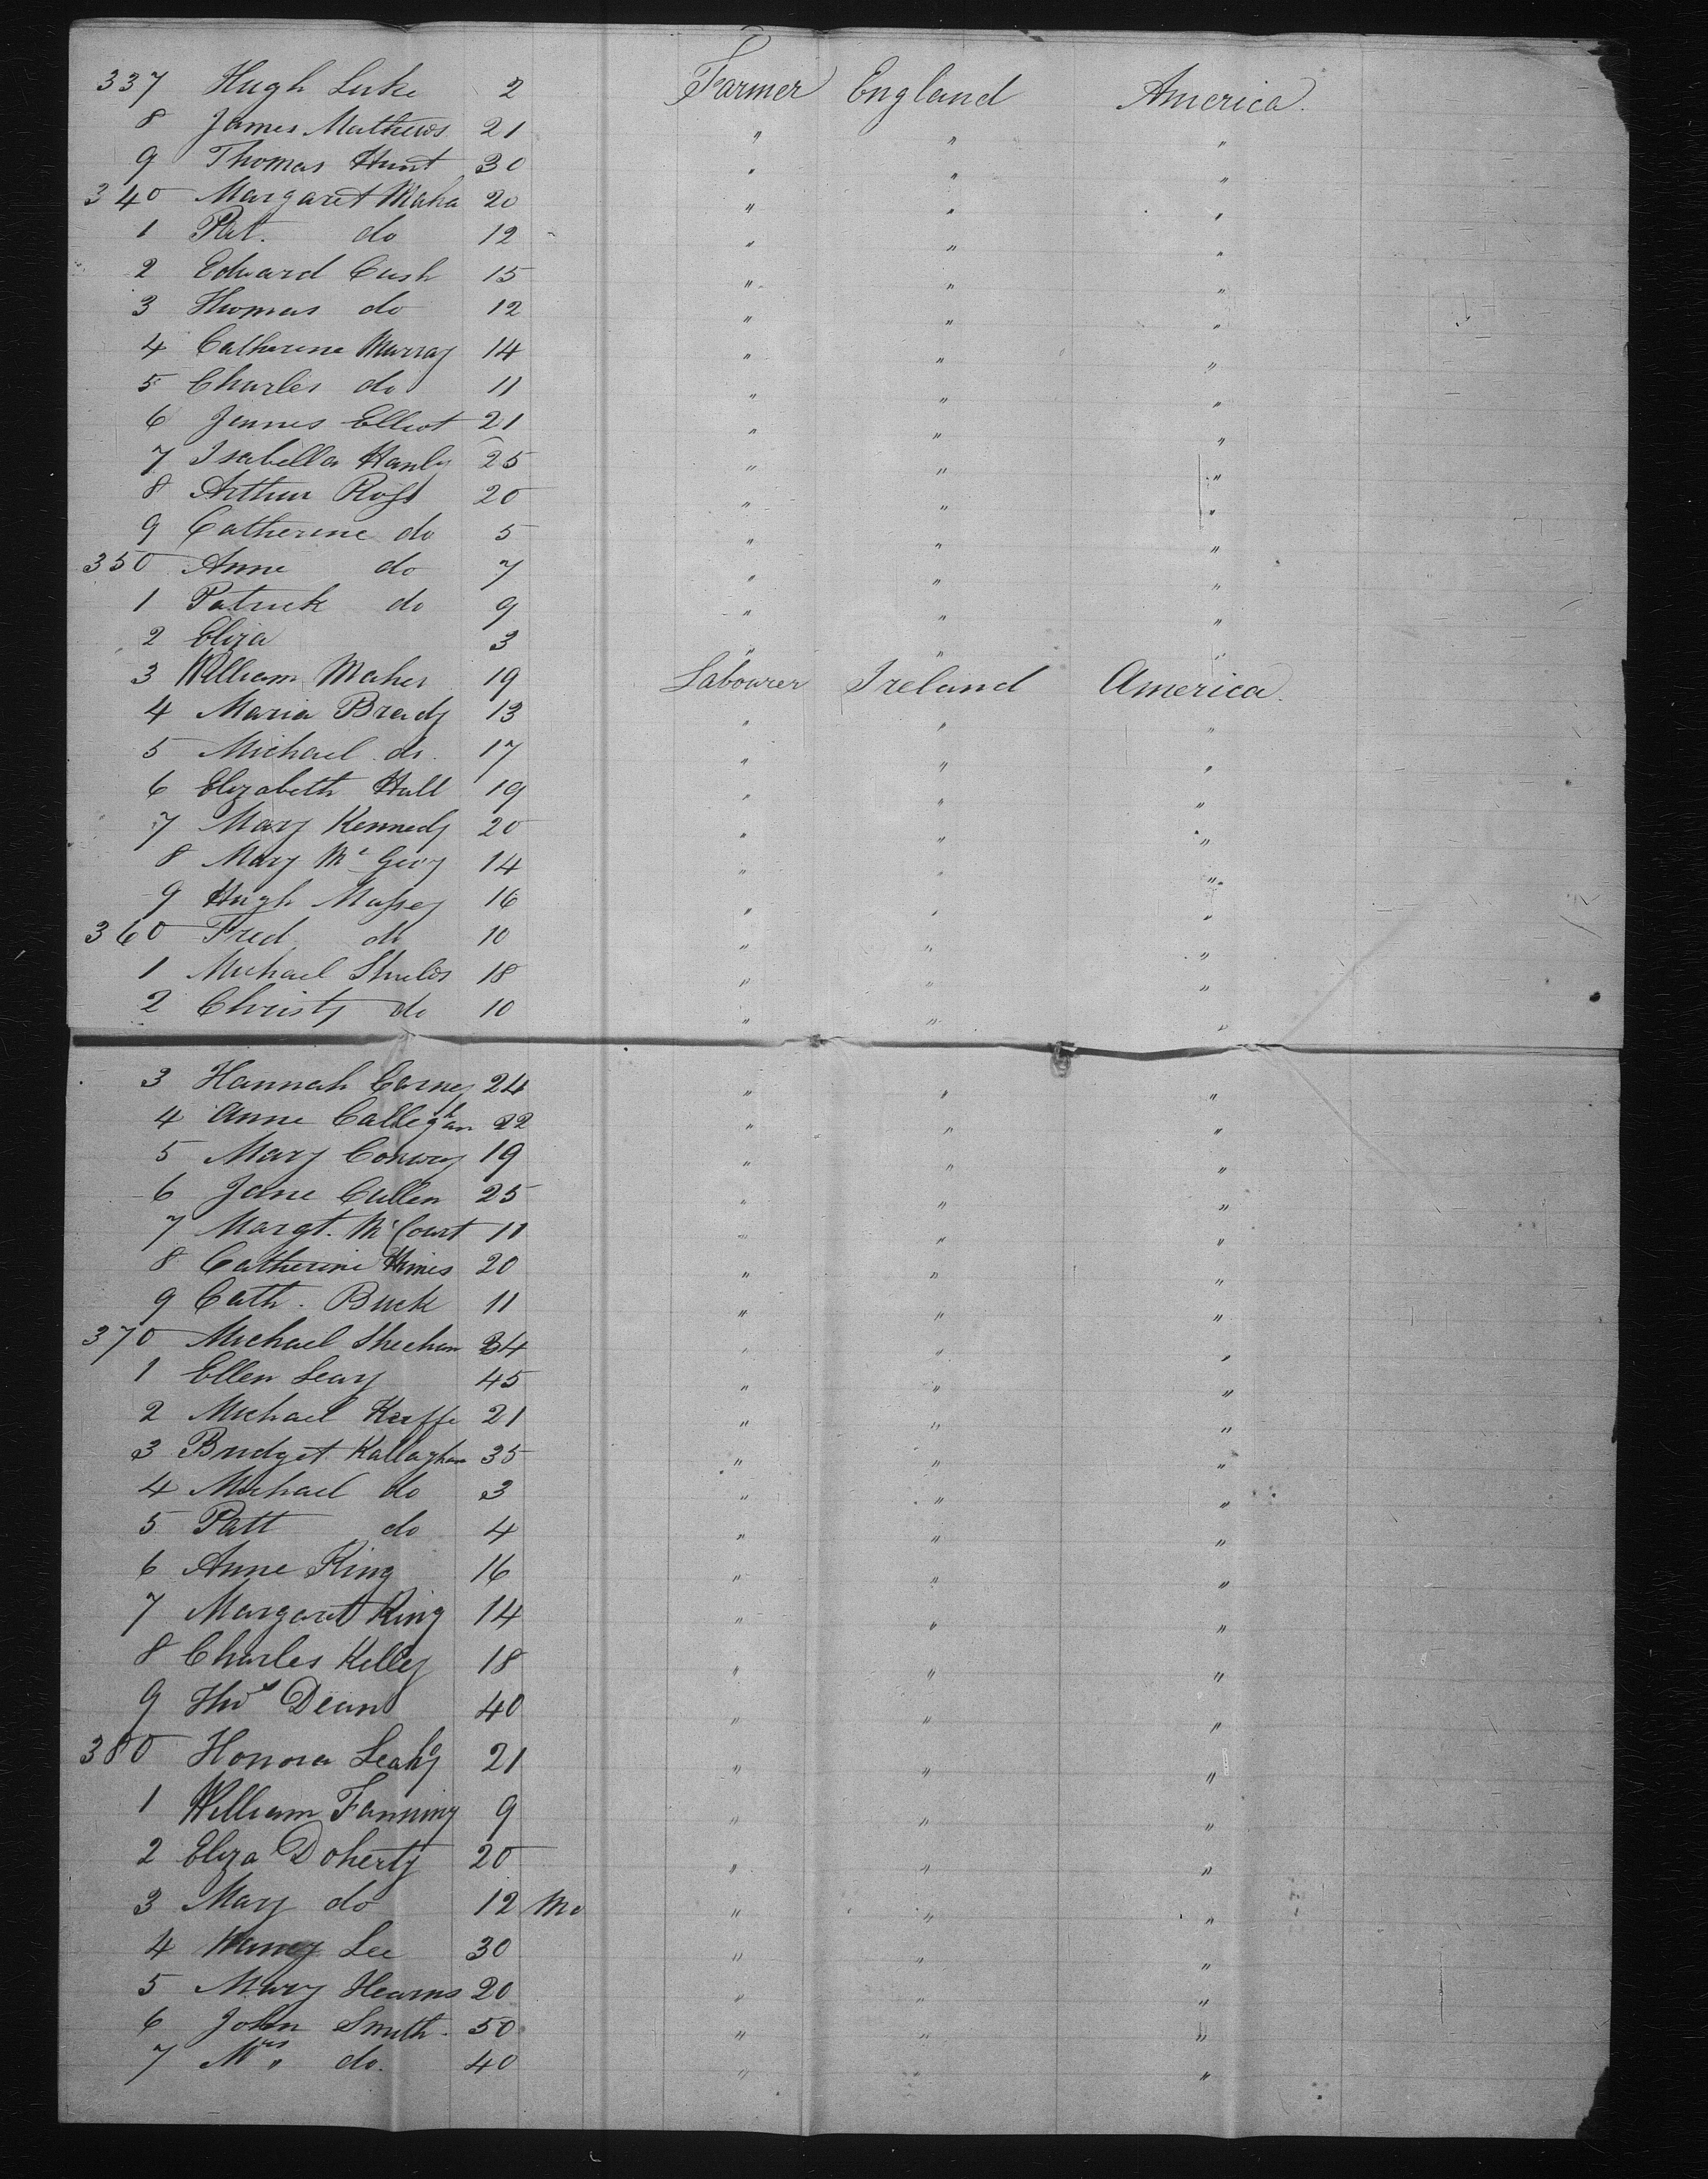 337 Hugh Luke 2 Farmer England America.
8 James Mathews 21 " " "
9 Thomas Hunt 30 " " "
340 Margaret Maha 20 " " "
1 Pat. do 12 " " "
2 Edward Cush 15 " " "
3 Thomas do 12 " " "
4 Catherine Murray 14 " " "
5 Charles do 11 " " "
6 James Elliot 21 " " "
7 Isabella Hanly 25 " " "
8 Arthur Ross 20 " " "
9 Catherine do 5 " " "
350 Anne do 7 " " "
1 Patrick do 9 " " "
2 Eliza 3 " " "
3 William Maher 19 Labourer Ireland America.
4 Maria Brady 13 " " "
5 Michael do. 17 " " "
6 Elizabeth Hall 19 " " "
7 Mary Kennedy 20 " " "
8 Mary Mc 14 " " "
9 Hugh Massey 16 " " "
360 Fred do 10 " " "
1 Michael Shields 18 " " "
2 Christy do 10 " " "
3 Hannah Carney 24 " " "
4 Anne Calleghan 22 " " "
5 Mary Conway 19 " " "
6 Jane Cullen 25 " " "
7 Margt. McCourt 11 " " "
8 Catherine Himes 20 " " "
9 Cath. Buck 11 " " "
370 Michael Sheehan 34 " " "
1 Ellen Leary 45 " " "
2 Michael Keeffe 21 " " "
3 Bridget Kallaghan 35 " " "
4 Michael do 3 " " "
5 Patt do 4 " " "
6 Anne King 16 " " "
7 Margaret King 14 " " "
8 Charles Kelley 18 " " "
9 Thos Dean 40 " " "
380 Honora Leahy 21 " " "
1 William Fanning 9 " " "
2 Eliza Doherty 20 " " "
3 Mary do 12 Mo " " "
4 Nancy Lee 30 " " "
5 Mary Hearns 20 " " "
6 John Smith. 50 " " "
7 Mrs " do. 40 " " "